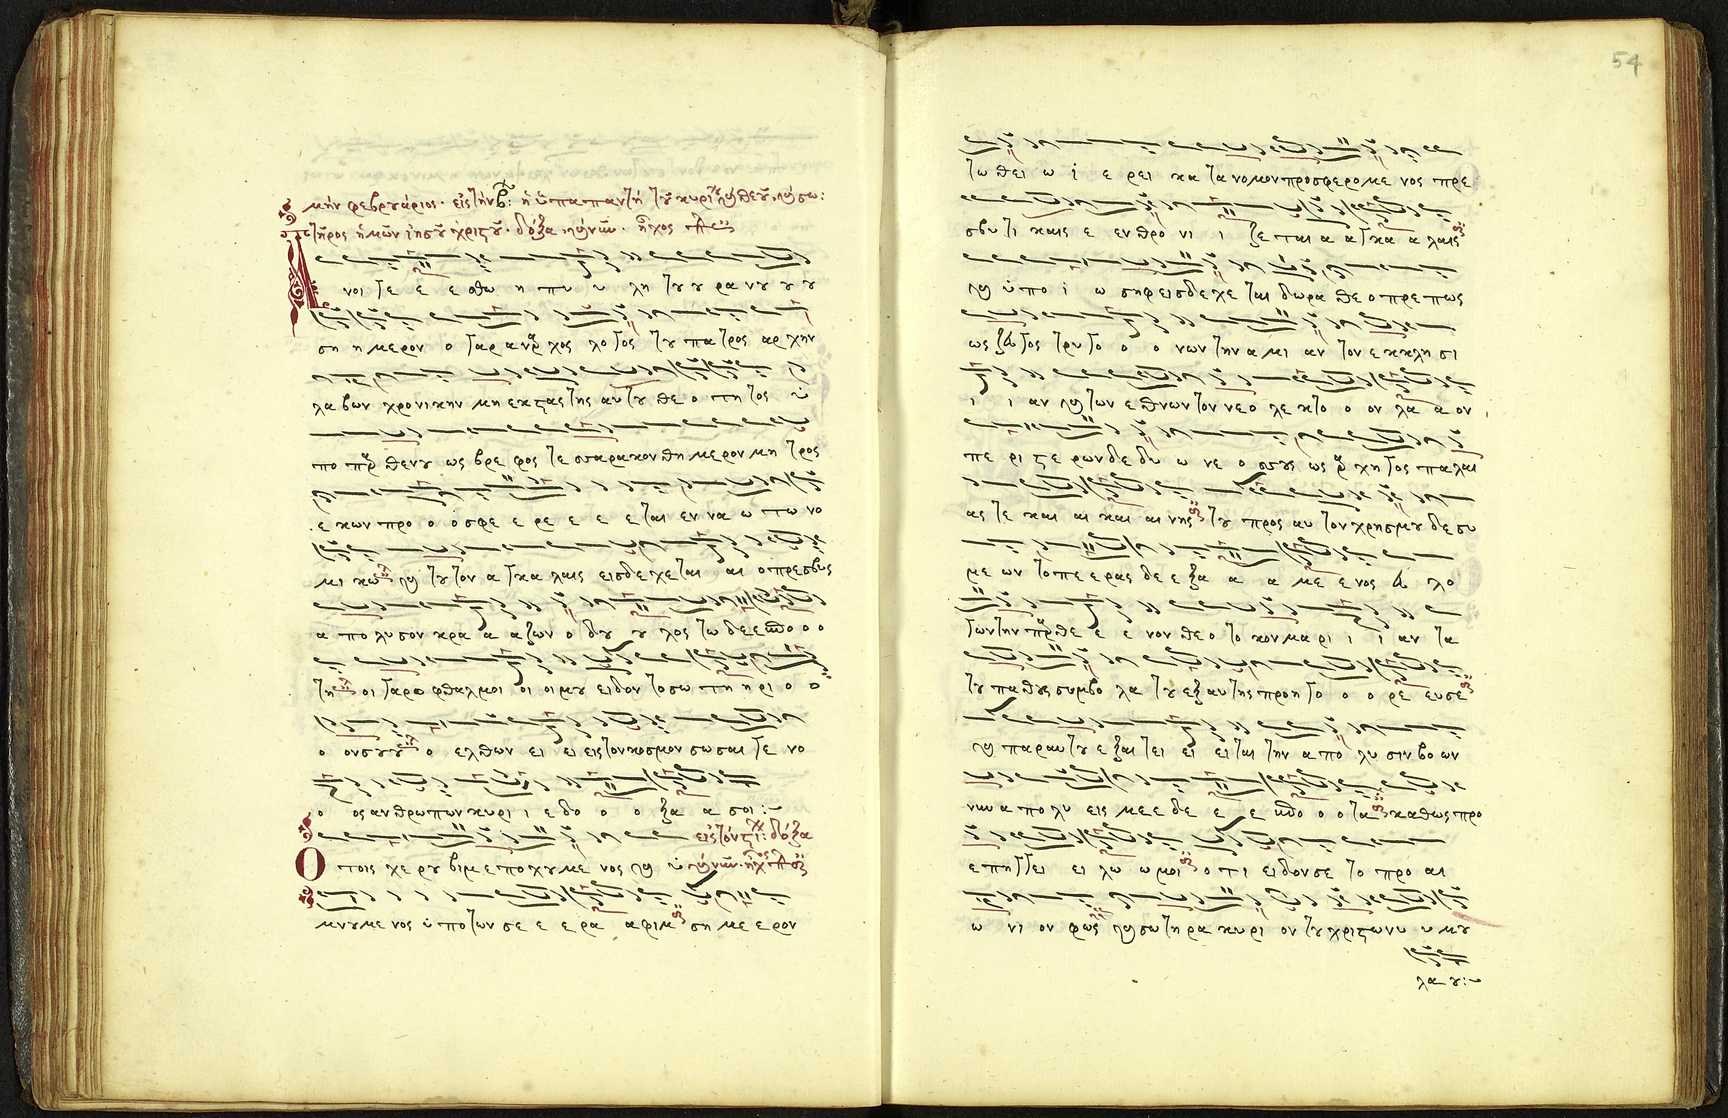 μὴν φεβρουάριος· εἰς τὴν β: ἡ ὑπαπαντὴ τοῦ κυρίου καὶ θεοῦ καὶ σω:
τῆρος ἡμῶν ἰησοῦ χριστοῦ· δόξα καὶ νῦν· ἦχος
Α νοι γε ε ε σθω η πυ υ λη του ου ρα νου ου ου
ση η μερον ο γαρ αναρχος λο γος του πατρος αρχην
λαβων χρονικην μη εκστας της αυτου θεο τητος ὑ
πο παρθενου ως βρεφος τεσσαρακονθημερον μητρος
ε κων προ ο οσφε ε ρε ε ε εται εν να ω τω νο
μι κω και τουτον αγκαλαις εισδεχεται αι ο πρεσβυς
α πολυσον κρα α αζων ο δου ου λος τω δεεσπο ο ο
τη οι γαρ οφθαλμοι οι οι μου ειδον το σωτη η ρι ο ο
ο ονσου ου ο ελθων ει ει εις τον κοσμον σωσαι γενο
ο ος ανθρωπων κυρι ι ε δο ο ο ξα α σοι :~
εἰς τὸν στι: δόξα
Ο τοις χερουβιμ εποχουμενος και ὑ καὶ νῦν· ἦχος
μνουμενος ὑπο των σε ε ερα αφιμ σημε ερον
54
τω θει ω ἱ ε ρει κατα νομον προσφερομενος πρε
σβυτι καις ε ενθρονι ι ζεται α αγκα α λαις
και ὑπο ἰ ωσηφ εισδεχεται δωρα θεοπρεπως
ως ζευγος τρυγο ο ο νων την αμιαν τον εκκλησι
ι ι αν και των εθνων τον νεολεκτο ο ον λα α ον
περιστερων δε δυ ω νε ο σσους ως αρχηγος παλαι
ας τε και αι και αι νης του προς αυτον χρησμου δε συ
με ων το πεερας δεεξα α α με ενος ευλο
γων την παρθε ε ε νον θεοτοκον μαρι ι ι αν τα
του παθους συμβολα του εξ αυτης προηγο ο ο ρε ευσε
και παρ αυτου εξαιτει ει ειται την απολυσιν βοων
νυν απολυ εις μεε δε ε ε σπο ο τα καθως προ
επηγγει ειλω ω μοι οτι ειδον σε το προ αι
ω νι ον φως και σωτηρα κυρι ον του χριστωνυ υ μου
λα ου :~